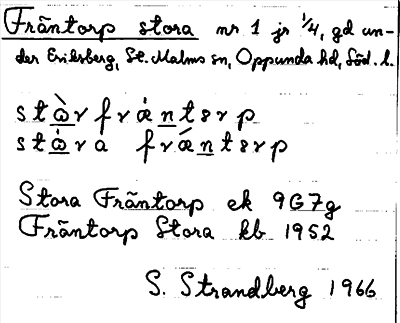 Fräntorp stora nr 1 jr 1/4, gd un-
der Eriksberg, St. Malms sn, Oppunda hd, Söd. l.
stɷ̀r frǽntɜrp
stɷ̀ra frǽntɜrp
Stora Fräntorp ek 9G7g
Fräntorp Stora kb 1952
S. Strandberg 1966